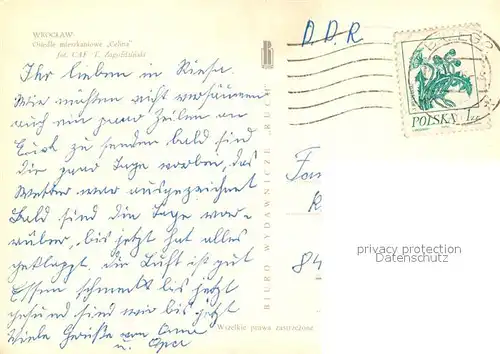 WROCŁAW
Osiedle mieszkaniowe „Celina"
fot. CAF - T. Zagoździński
Ihr lieben in Riesa.
Wir möchten nicht versäumen
auch ein paar Zeilen an
Euch zu senden bald sind
die paar Tage vorbei, das
Wetter war ausgezeichnet
bald sind die Tage vor-
rüber, bis jetzt hat alles
geklappt. die Luft ist gut
Essen schmekt bis jetzt
gesund sind wir bis jetzt
Viele Grüße von Oma
u. Opa
BIURO WYDAWNICZE RUCH
Wszelkie prawa zastrzeżone
D.D.R
POLSKA 1 ZŁ
Fam
84
privacy protection
Datenschutz